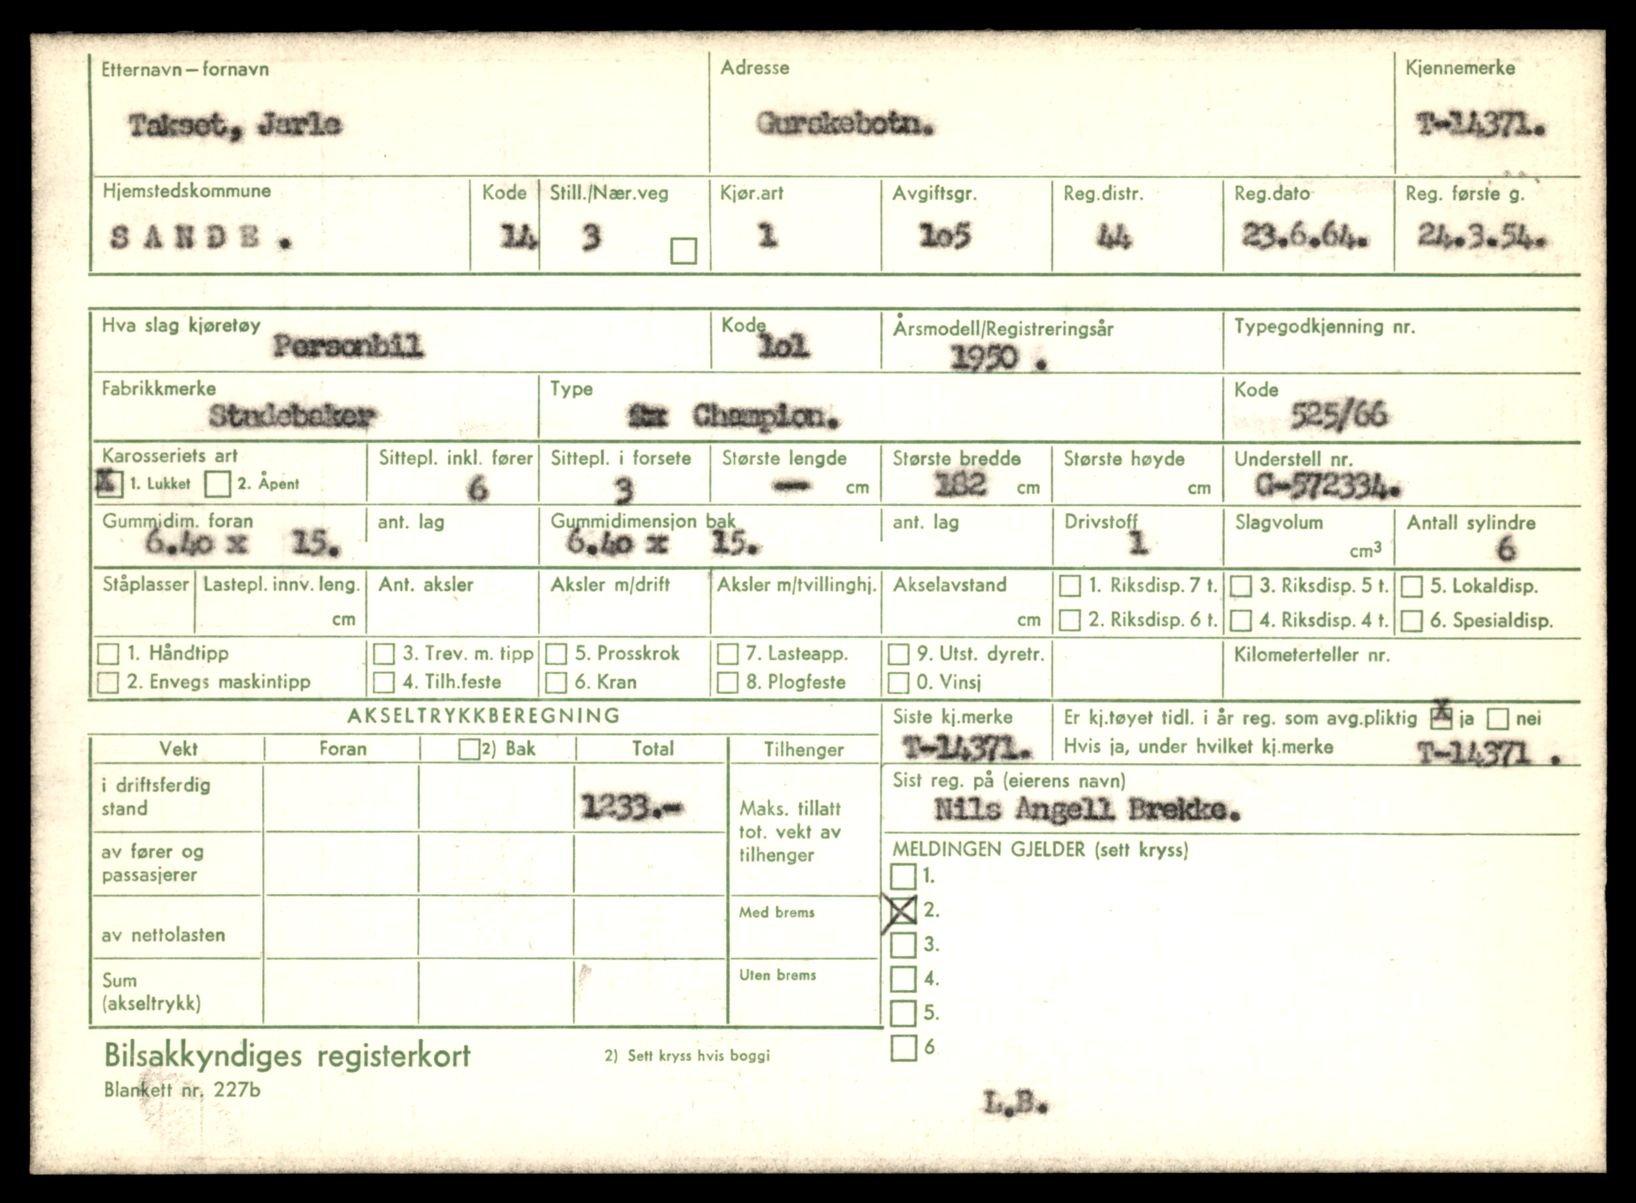 Etternavn – fornavn Adresse Kjennemerke
Takset, Jarle Gurskebotn. T-14371.
Hjemstedskommune Kode Still./Nær.veg Kjør.art Avgiftsgr. Reg.distr. Reg.dato Reg. første g.
SANDE. 14 3 1 1o5 44 23.6.64. 24.3.54.
Hva slag kjøretøy Kode Årsmodell/Registreringsår Typegodkjenning nr.
Personbil 1o1 1950 .
Fabrikkmerke Type Kode
Studebaker Champion. 525/66
Karosseriets art Sittepl. inkl. fører Sittepl. i forsete Største lengde Største bredde Største høyde Understell nr.
X 1. Lukket 2. Åpent 6 3 — cm 182 cm cm G-572334.
Gummidim. foran ant. lag Gummidimensjon bak ant. lag Drivstoff Slagvolum Antall sylindre
6.40 x 15. 6.40 x 15. 1 cm³ 6
Ståplasser Lastepl. innv. leng. Ant. aksler Aksler m/drift Aksler m/tvillinghj. Akselavstand 1. Riksdisp. 7 t. 3. Riksdisp. 5 t. 5. Lokaldisp.
cm cm 2. Riksdisp. 6 t. 4. Riksdisp. 4 t. 6. Spesialdisp.
1. Håndtipp 3. Trev. m. tipp 5. Prosskrok 7. Lasteapp. 9. Utst. dyretr. Kilometerteller nr.
2. Envegs maskintipp 4. Tilh.feste 6. Kran 8. Plogfeste 0. Vinsj
AKSELTRYKKBEREGNING Siste kj.merke Er kj.tøyet tidl. i år reg. som avg.pliktig X ja nei
Vekt Foran 2) Bak Total Tilhenger T-14371. Hvis ja, under hvilket kj.merke T-14371 .
i driftsferdig stand 1233.- Sist reg. på (eierens navn)
Maks. tillatt tot. vekt av tilhenger Nils Angell Brekke.
av fører og passasjerer MELDINGEN GJELDER (sett kryss)
1.
Med brems X 2.
av nettolasten 3.
Sum (akseltrykk) Uten brems 4.
5.
Bilsakkyndiges registerkort 2) Sett kryss hvis boggi 6
Blankett nr. 227b
L.B.